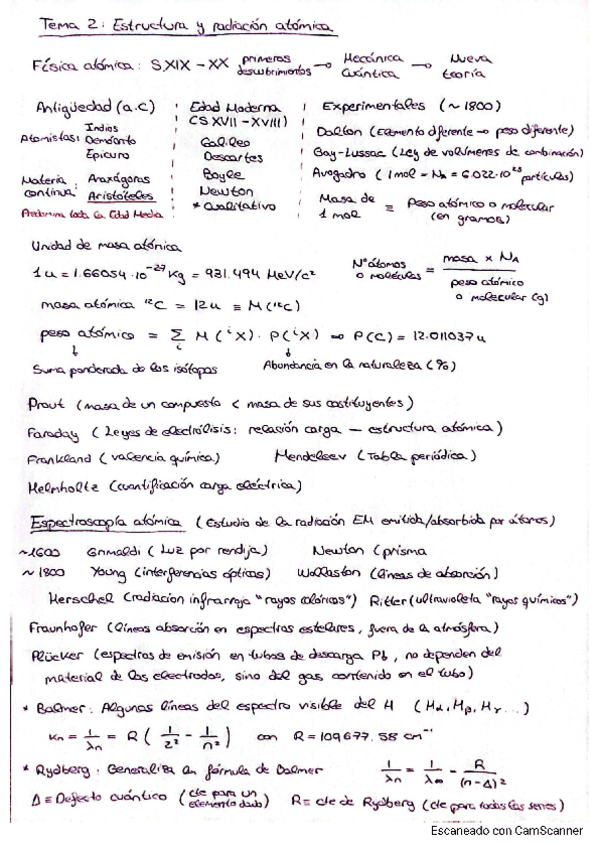 Tema 2: Estructura y radiación atómica
Física atómica: S.XIX - XX primeros descubrimientos → Mecánica Cuántica → Nueva teoría
Antigüedad (a.C)
Atomistas: Indios
Demócrito
Epicuro
Materia continua: Anaxágoras
Aristóteles
Predomina toda la Edad Media
Edad Moderna
(S XVII - XVIII)
Galileo
Descartes
Boyle
Newton
* Cualitativo
Experimentales (~ 1800)
Dalton (Elemento diferente → peso diferente)
Gay-Lussac (Ley de volúmenes de combinación)
Avogadro (1 mol = NA = 6.022·10^23 partículas)
Masa de 1 mol ≡ Peso atómico o molecular (en gramos)
Unidad de masa atómica
1u = 1.66054·10^-27 Kg = 931.494 MeV/c²
Nº átomos o moléculas = masa x NA / peso atómico o molecular (g)
masa atómica ¹²C = 12u ≡ M(¹²C)
peso atómico = Σi M(ⁱX)·P(ⁱX) → P(C) = 12.011037u
Suma ponderada de los isótopos
Abundancia en la naturaleza (%)
Prout (masa de un compuesto < masa de sus costituyentes)
Faraday (Leyes de electrólisis: relación carga - estructura atómica)
Frankland (valencia química) Mendeleev (Tabla periódica)
Helmholtz (cuantificación carga eléctrica)
Espectroscopía atómica (Estudio de la radiación EM emitida/absorbida por átomos)
~1600 Grimaldi (Luz por rendija) Newton (prisma
~1800 Young (interferencias ópticas) Wollaston (líneas de absorción)
Herschel (radiación infrarroja "rayos calóricos") Ritter (ultravioleta "rayos químicos")
Fraunhofer (líneas absorción en espectros estelares, fuera de la atmósfera)
Plücker (espectros de emisión en tubos de descarga Pb, no dependen del
material de los electrodos, sino del gas contenido en el tubo)
* Balmer: Algunas líneas del espectro visible del H (Hα, Hβ, Hγ...)
κn = 1/λn = R (1/2² - 1/n²) con R = 109677.58 cm⁻¹
* Rydberg: Generaliza la fórmula de Balmer 1/λn = 1/λ∞ - R/(n-Δ)²
Δ ≡ Defecto cuántico (cte para un elemento dado) R ≡ cte de Rydberg (cte para todas las series)
Escaneado con CamScanner